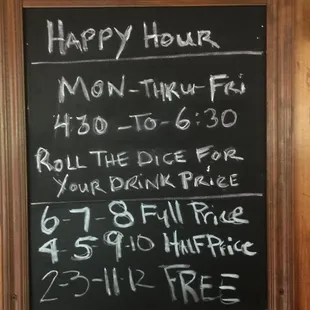 HAPPY HOUR
MON-THRU-FRI
430-TO-6:30
ROLL THE DICE FOR
YOUR DRINK PRIZE
6-7-8 Full Price
4-5 9-10 HALF Price
2-3-11-12 FREE